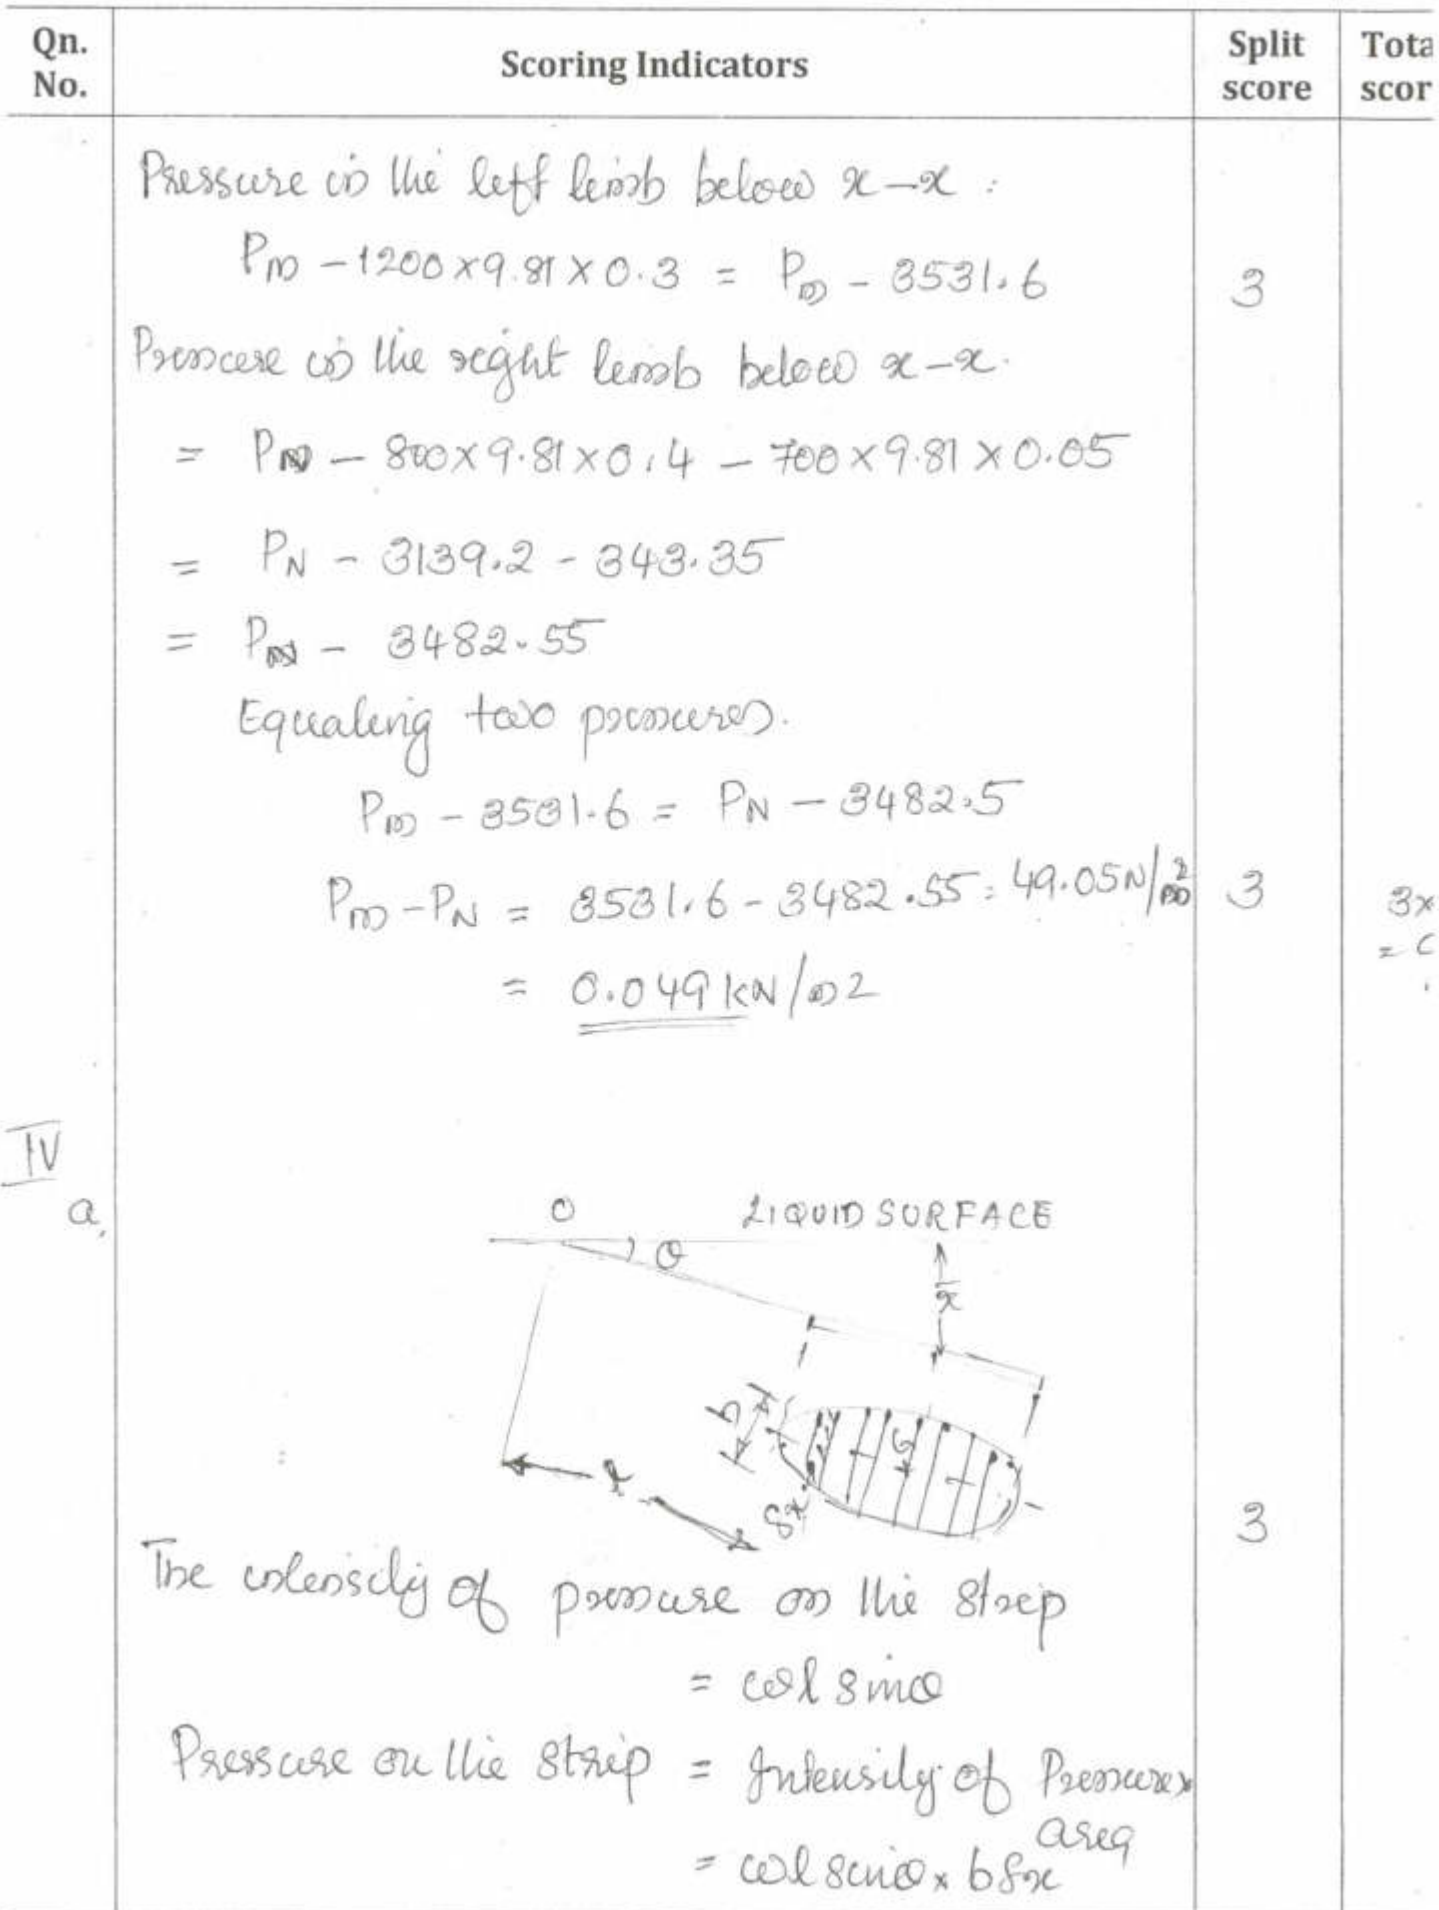 Qn. No. Scoring Indicators Split score Tota scor
Pressure in the left limb below x-x :
Pm - 1200×9.81×0.3 = Pm - 3531.6 3
Pressure in the right limb below x-x.
= PN - 800×9.81×0.4 - 700×9.81×0.05
= PN - 3139.2 - 343.35
= PN - 3482.55
Equating two pressures.
Pm - 3531.6 = PN - 3482.5
Pm - PN = 3531.6 - 3482.55 = 49.05N/m² 3 3×
= 0.049 kN/m2
IV
a,
O LIQUID SURFACE
θ
x̄
b
G
l
δx 3
The intensity of pressure on the strip
= ωl sinθ
Pressure on the strip = Intensity of Pressure ×
area
= ωl sinθ × bδx